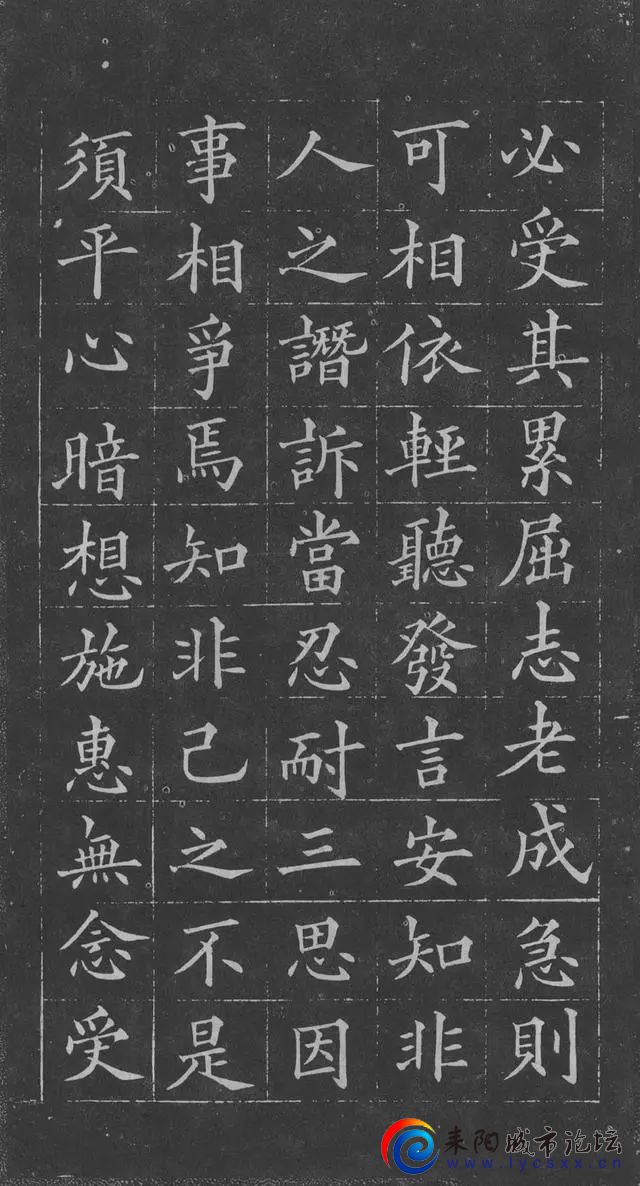 必受其累屈志老成急則
可相依輕聽發言安知非
人之譖訴當忍耐三思因
事相爭焉知非己之不是
須平心暗想施惠無念受
耒阳城市论坛
www.lycsxx.cn